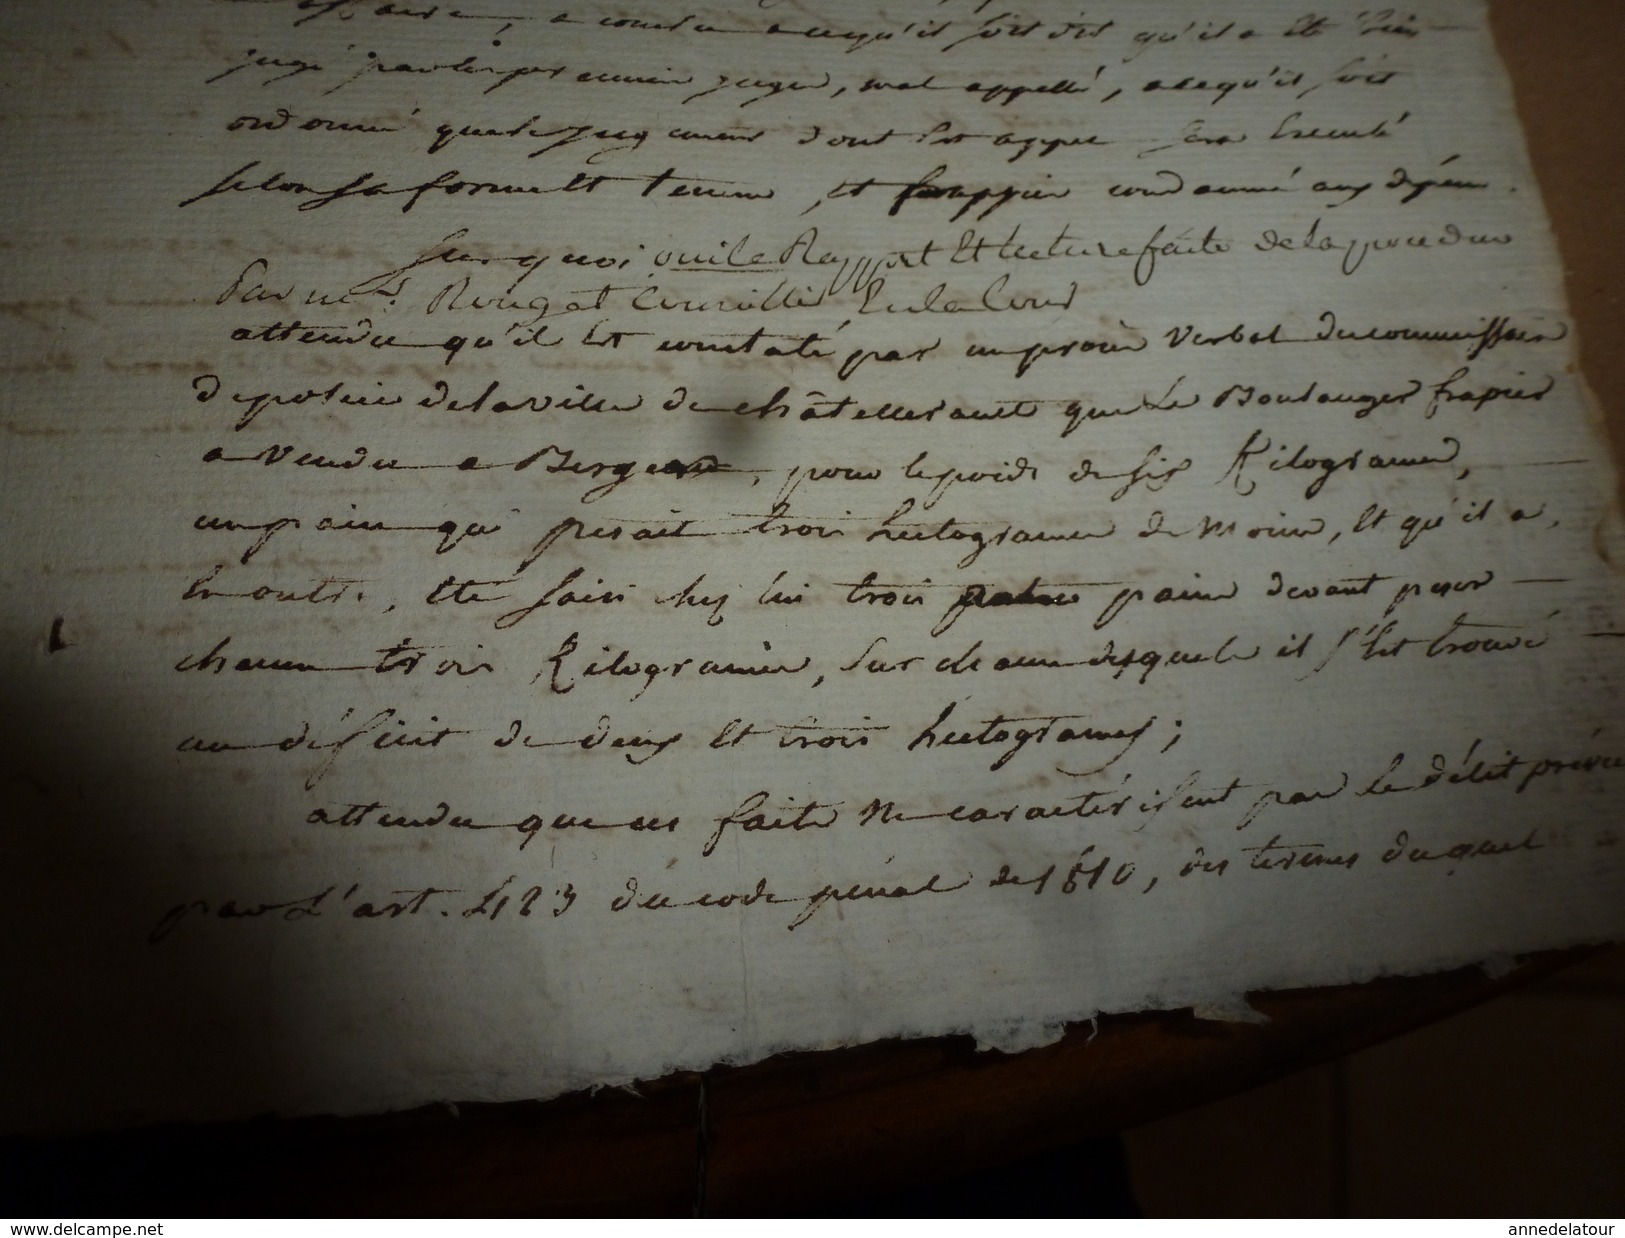 affaire, a conclu a ce qu'il soit dit qu'il a été bien
jugé par les premiers juges, mal appellé, a ce qu'il soit
ordonné que le jugement dont est appel sera Executé
selon sa forme Et teneur, et frappier condamné aux dépens.
Sur quoi, oui le Rapport Et lecture faite de la procedure
Par mr. Rouget Conseiller En la Cour
attendu qu'il Est constaté par un procès Verbal du commissaire
de police de la ville de châtellerault que Le Boulanger frapier
a Vendu a Bergeron, pour le poids de six Kilogrames,
un pain qui pesait trois hectogrames de moins, Et qu'il a,
En outre, Eté saisi chez lui trois pains devant peser
chacun trois Kilogrames, sur chacun desquels il s'Est trouvé
un déficit de deux Et trois hectogrames;
attendu que ces faits Ne caractérisent pas le délit prévu
par L'art. 423 du code pénal de 1810, des termes duquel
www.delcampe.net
annedelatour